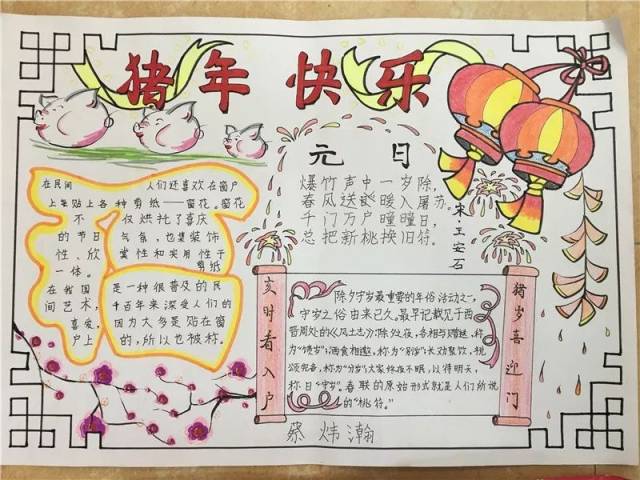 猪年快乐
元日
爆竹声中一岁除,
春风送暖入屠苏。
千门万户曈曈日,
总把新桃换旧符。
宋·王安石
在民间 人们还喜欢在窗户
上张贴上各种剪纸——窗花。窗花
不仅烘托了喜庆
的节日气氛,也集装饰
性、欣赏性和实用性于
一体。剪纸
在我国是一种很普及的民
间艺术,千百年来深受人们的
喜爱,因为大多是贴在窗
户上的,所以也被称
亥时看入户
猪岁喜迎门
除夕守岁最重要的年俗活动之一,
守岁之俗由来已久。最早记载见于西
晋周处的《风土志》:除夕之夜,各相与赠送,称
为“馈岁”;酒食相邀,称为“别岁”;长幼聚饮,祝
颂完备,称为“分岁”;大家终夜不眠,以待明天,
称曰“守岁”。春联的原始形式就是人们所说
的“桃符”。
蔡炜瀚